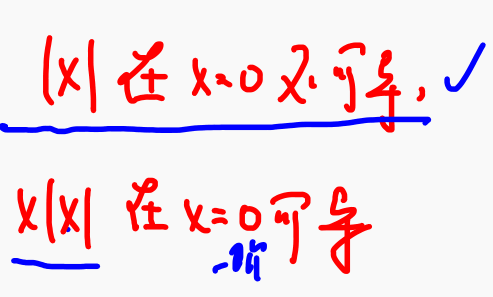 |x| 在 x=0 不可导, ✓
x|x| 在 x=0 可导
一阶